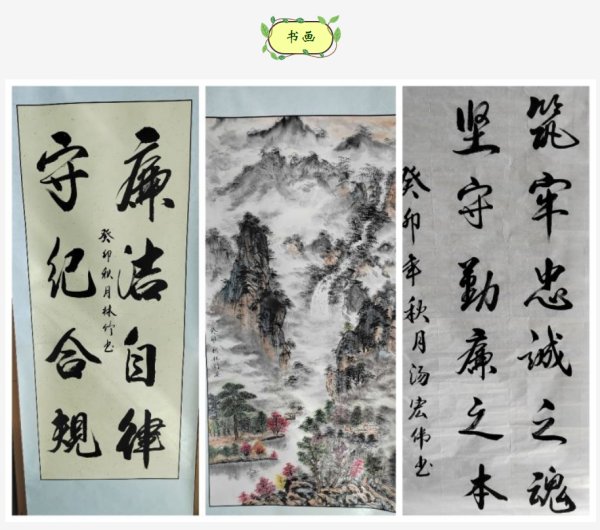 书画
廉洁自律
守纪合规
癸卯秋月林竹书
筑牢忠诚之魂
坚守勤廉之本
癸卯年秋月汤宏伟书